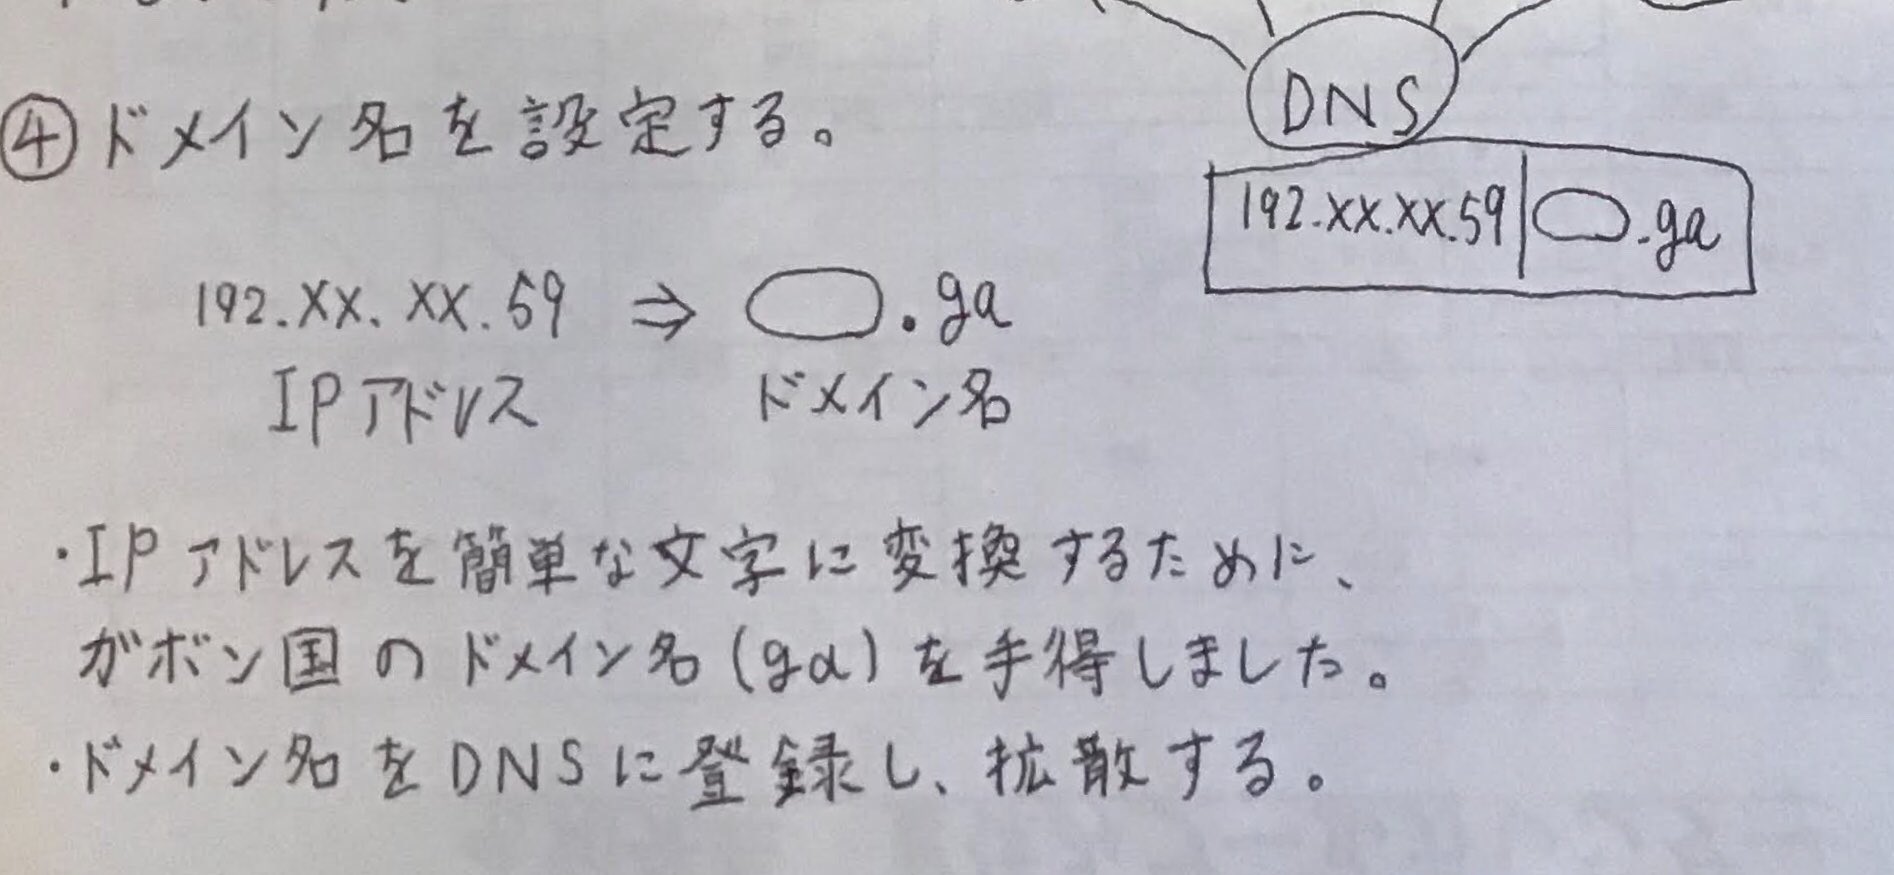 ④ドメイン名を設定する。
DNS
192.xx.xx.59 .ga
192.xx.xx.59 ⇒ .ga
IPアドレス ドメイン名
・IPアドレスを簡単な文字に変換するために、
ガボン国のドメイン名(ga)を手得しました。
・ドメイン名をDNSに登録し、拡散する。